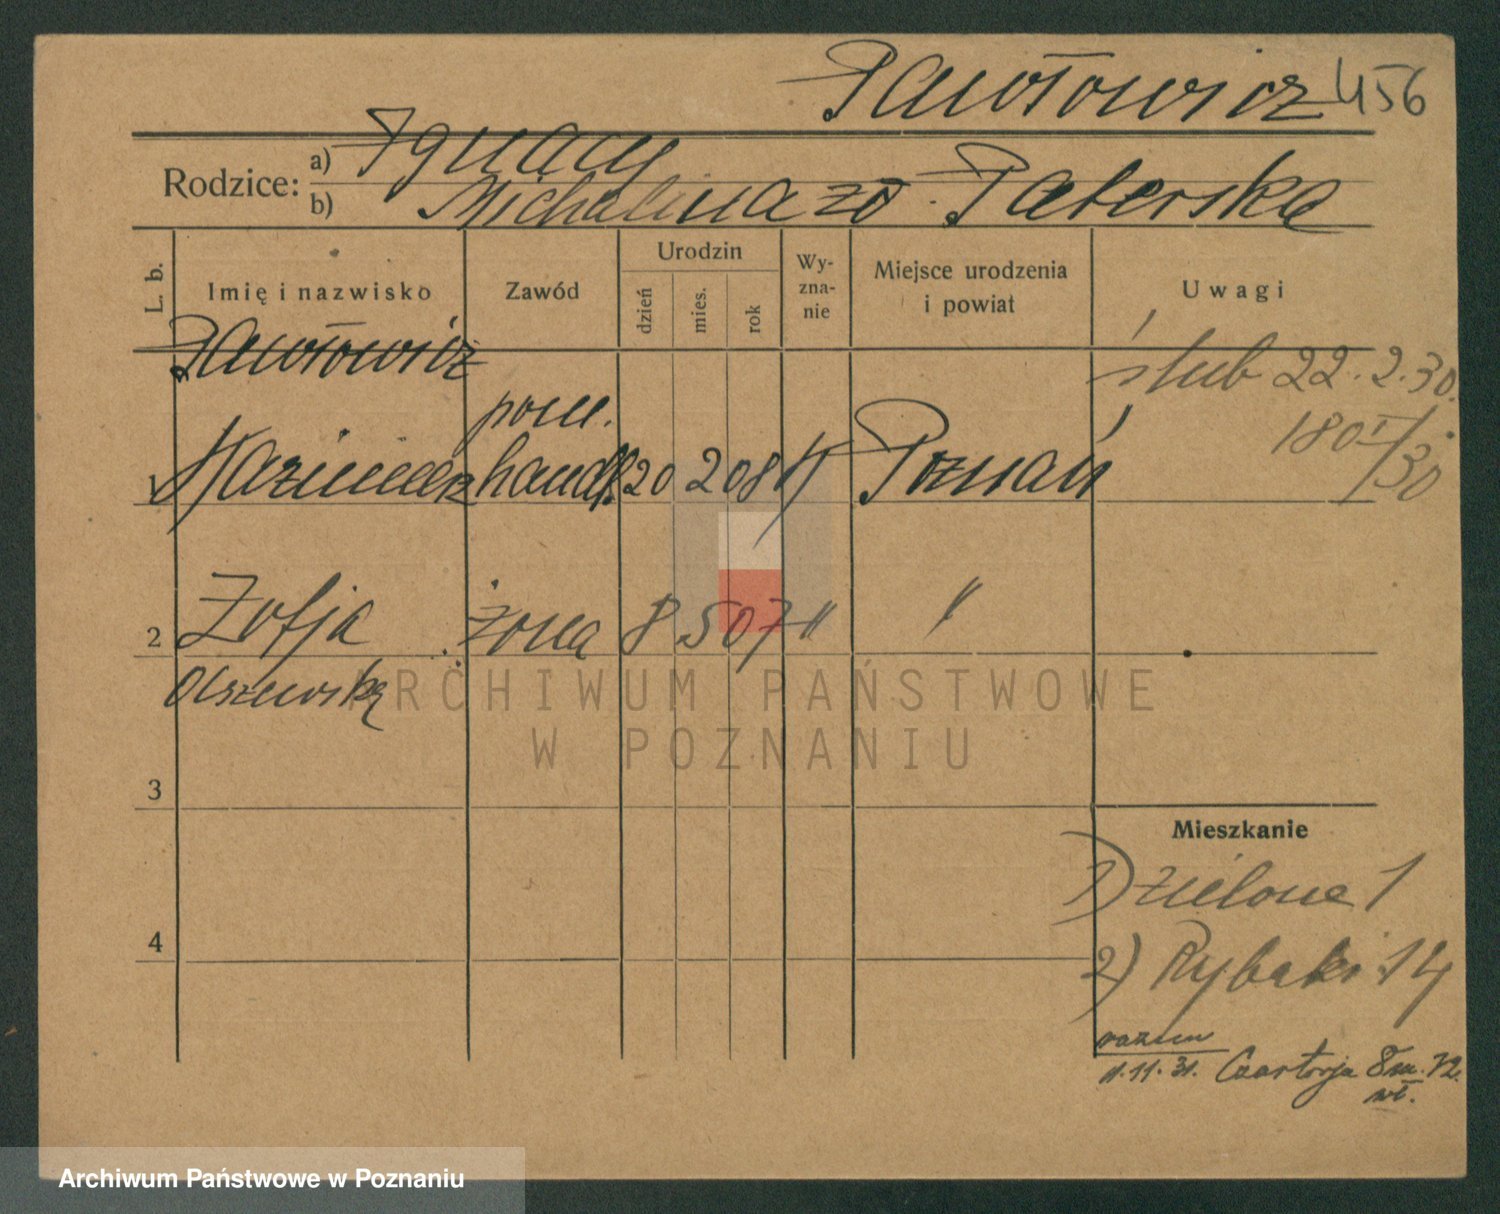 Pawłowicz 456
Rodzice: a) Ignacy
b) Michalina zd. Paterska
L. b.
Imię i nazwisko
Zawód
Urodzin
dzień
mies.
rok
Wy-
zna-
nie
Miejsce urodzenia
i powiat
Uwagi
Pawłowicz
ślub 22.2.30.
pom.
1 Kazimierz handl. 20 2 08 K Poznań
180 I/30
2 Zofja żona 8 5 07 " "
Olszewska
ARCHIWUM PAŃSTWOWE
W POZNANIU
3
Mieszkanie
1) Zielona 1
4
2) Rybaki 14
razem
11.11.31. Czartorja 8 m. 12.
wł.
Archiwum Państwowe w Poznaniu